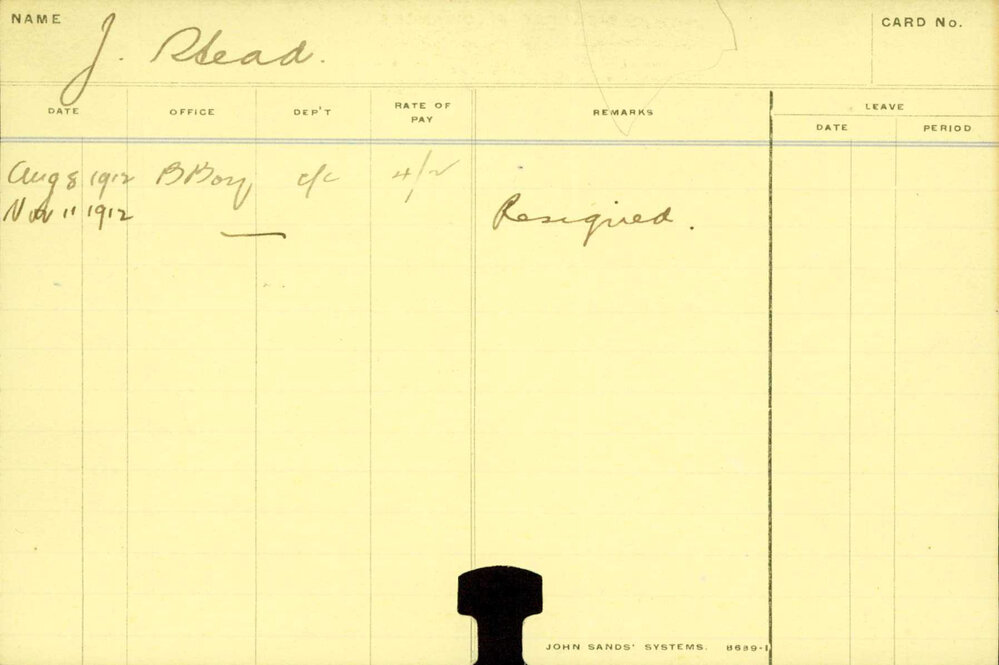 NAME J. Stead. CARD No.
DATE OFFICE DEP'T RATE OF PAY REMARKS LEAVE
DATE PERIOD
Aug 8 1912 B Boy c/c 4/2
Nov 11 1912 — Resigned.
JOHN SANDS' SYSTEMS. 8689-1